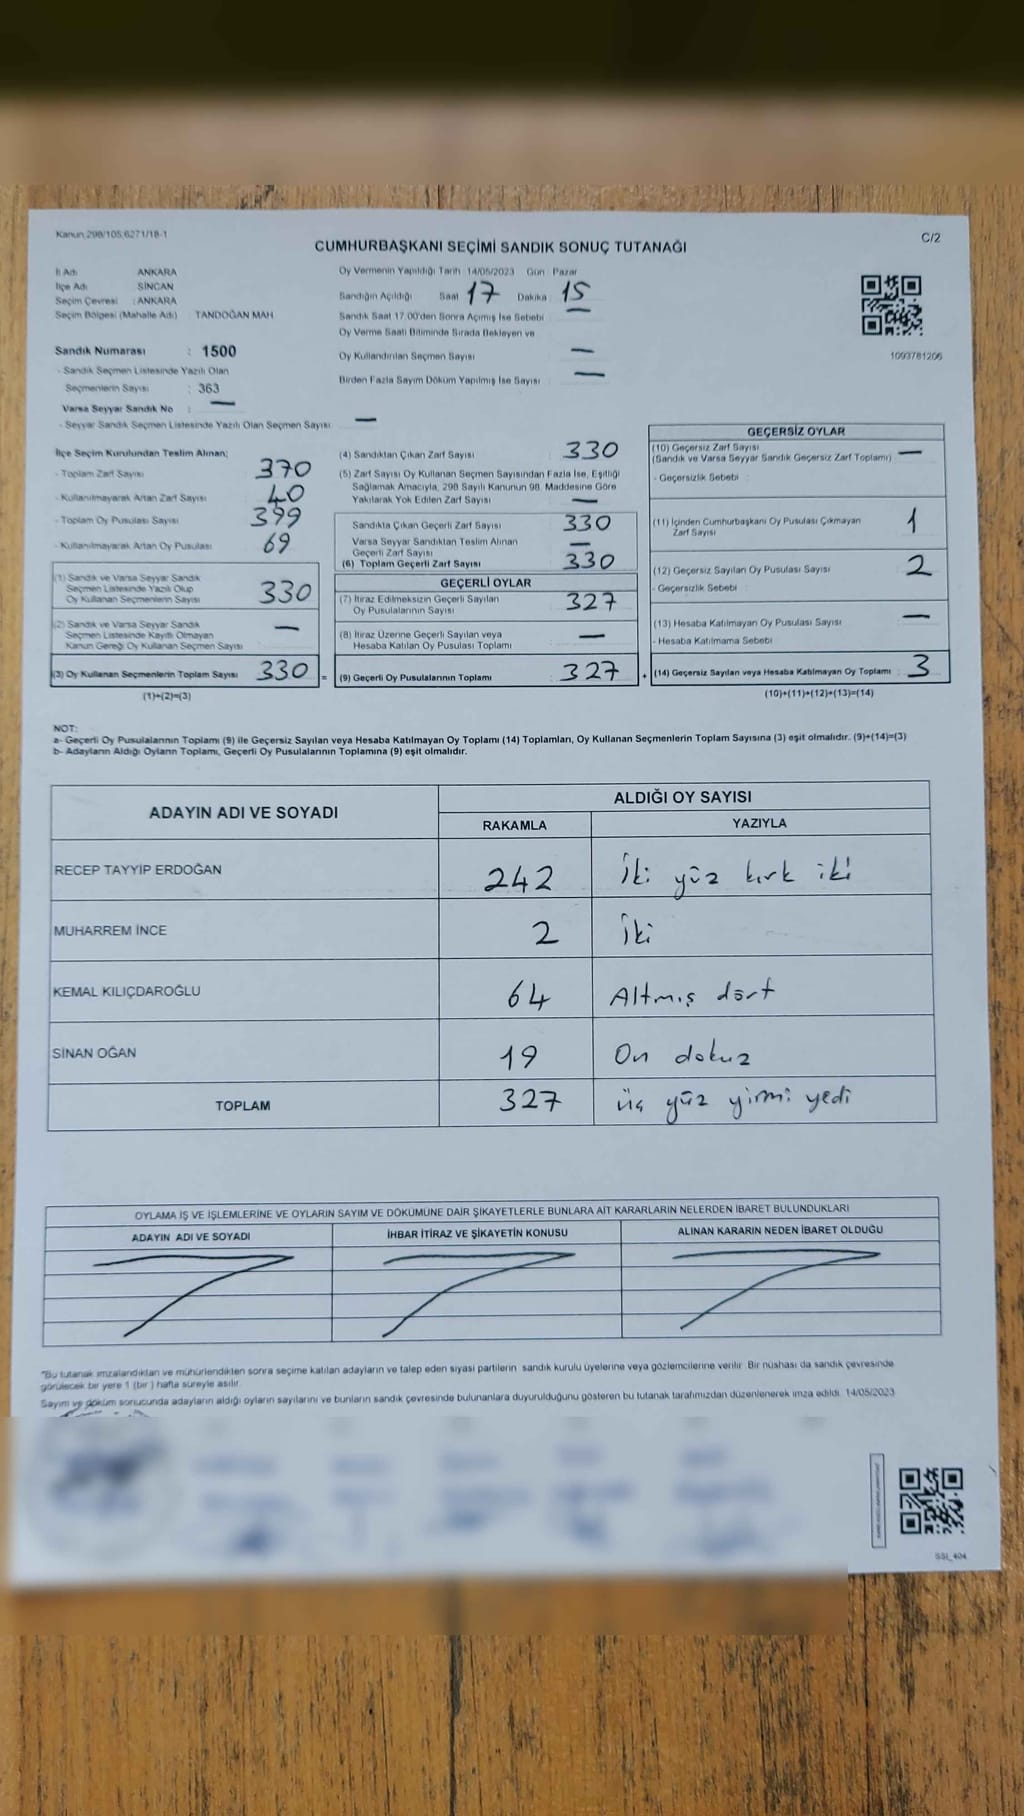 Kanun:298/105,6271/18-1
C/2
CUMHURBAŞKANI SEÇİMİ SANDIK SONUÇ TUTANAĞI
İl Adı : ANKARA
İlçe Adı : SİNCAN
Seçim Çevresi : ANKARA
Seçim Bölgesi (Mahalle Adı) : TANDOĞAN MAH.
Sandık Numarası : 1500
- Sandık Seçmen Listesinde Yazılı Olan
Seçmenlerin Sayısı : 363
Varsa Seyyar Sandık No : —
- Seyyar Sandık Seçmen Listesinde Yazılı Olan Seçmen Sayısı : —
Oy Vermenin Yapıldığı Tarih : 14/05/2023 Gün : Pazar
Sandığın Açıldığı Saat : 17 Dakika : 15
Sandık Saat 17.00'den Sonra Açımış İse Sebebi : —
Oy Verme Saati Bitiminde Sırada Bekleyen ve
Oy Kullandırılan Seçmen Sayısı : —
Birden Fazla Sayım Döküm Yapılmış İse Sayısı : —
1093781206
İlçe Seçim Kurulundan Teslim Alınan;
- Toplam Zarf Sayısı : 370
- Kullanılmayarak Artan Zarf Sayısı : 40
- Toplam Oy Pusulası Sayısı : 399
- Kullanılmayarak Artan Oy Pusulası : 69
(1) Sandık ve Varsa Seyyar Sandık
Seçmen Listesinde Yazılı Olup
Oy Kullanan Seçmenlerin Sayısı : 330
(2) Sandık ve Varsa Seyyar Sandık
Seçmen Listesinde Kayıtlı Olmayan
Kanun Gereği Oy Kullanan Seçmen Sayısı : —
(3) Oy Kullanan Seçmenlerin Toplam Sayısı : 330 =
(1)+(2)=(3)
(4) Sandıktan Çıkan Zarf Sayısı : 330
(5) Zarf Sayısı Oy Kullanan Seçmen Sayısından Fazla İse, Eşitliği
Sağlamak Amacıyla, 298 Sayılı Kanunun 98. Maddesine Göre
Yakılarak Yok Edilen Zarf Sayısı : —
Sandıkta Çıkan Geçerli Zarf Sayısı : 330
Varsa Seyyar Sandıktan Teslim Alınan
Geçerli Zarf Sayısı : —
(6) Toplam Geçerli Zarf Sayısı : 330
GEÇERLİ OYLAR
(7) İtiraz Edilmeksizin Geçerli Sayılan
Oy Pusulalarının Sayısı : 327
(8) İtiraz Üzerine Geçerli Sayılan veya
Hesaba Katılan Oy Pusulası Toplamı : —
(9) Geçerli Oy Pusulalarının Toplamı : 327 +
GEÇERSİZ OYLAR
(10) Geçersiz Zarf Sayısı : —
(Sandık ve Varsa Seyyar Sandık Geçersiz Zarf Toplamı)
- Geçersizlik Sebebi :
(11) İçinden Cumhurbaşkanı Oy Pusulası Çıkmayan
Zarf Sayısı : 1
(12) Geçersiz Sayılan Oy Pusulası Sayısı : 2
- Geçersizlik Sebebi :
(13) Hesaba Katılmayan Oy Pusulası Sayısı : —
- Hesaba Katılmama Sebebi :
(14) Geçersiz Sayılan veya Hesaba Katılmayan Oy Toplamı : 3
(10)+(11)+(12)+(13)=(14)
NOT:
a- Geçerli Oy Pusulalarının Toplamı (9) ile Geçersiz Sayılan veya Hesaba Katılmayan Oy Toplamı (14) Toplamları, Oy Kullanan Seçmenlerin Toplam Sayısına (3) eşit olmalıdır. (9)+(14)=(3)
b- Adayların Aldığı Oyların Toplamı, Geçerli Oy Pusulalarının Toplamına (9) eşit olmalıdır.
ADAYIN ADI VE SOYADI
ALDIĞI OY SAYISI
RAKAMLA YAZIYLA
RECEP TAYYİP ERDOĞAN 242 İki yüz kırk iki
MUHARREM İNCE 2 İki
KEMAL KILIÇDAROĞLU 64 Altmış dört
SİNAN OĞAN 19 On dokuz
TOPLAM 327 üç yüz yirmi yedi
OYLAMA İŞ VE İŞLEMLERİNE VE OYLARIN SAYIM VE DÖKÜMÜNE DAİR ŞİKAYETLERLE BUNLARA AİT KARARLARIN NELERDEN İBARET BULUNDUKLARI
ADAYIN ADI VE SOYADI İHBAR İTİRAZ VE ŞİKAYETİN KONUSU ALINAN KARARIN NEDEN İBARET OLDUĞU
*Bu tutanak imzalandıktan ve mühürlendikten sonra seçime katılan adayların ve talep eden siyasi partilerin sandık kurulu üyelerine veya gözlemcilerine verilir. Bir nüshası da sandık çevresinde
görülecek bir yere 1 (bir ) hafta süreyle asılır.
Sayım ve döküm sonucunda adayların aldığı oyların sayılarını ve bunların sandık çevresinde bulunanlara duyurulduğunu gösteren bu tutanak tarafımızdan düzenlenerek imza edildi. 14/05/2023
SSI_404